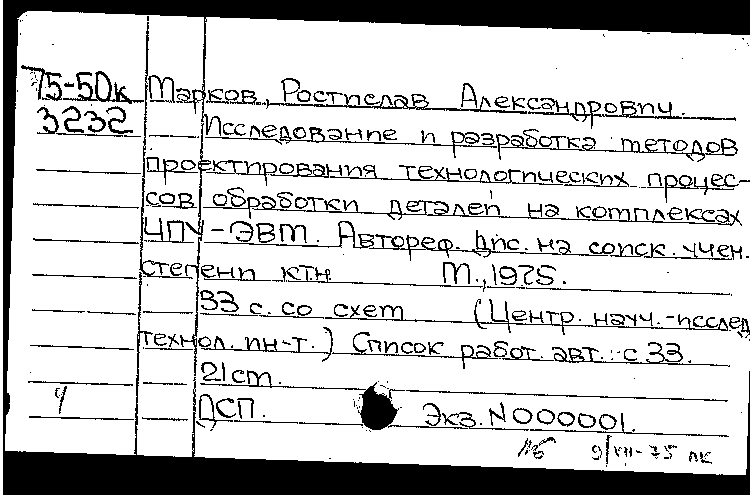 75-50к Марков, Ростислав Александрович.
3232 Исследование и разработка методов
проектирования технологических процес-
сов обработки деталей на комплексах
ЧПУ-ЭВМ. Автореф. дис. на соиск. учен.
степени ктн М., 1975.
33 с. со схем (Центр. науч.-исслед
технол. ин-т.) Список работ. авт.: с 33.
21 см.
ДСП. Экз. N000001.
9/VII-75 ЛК